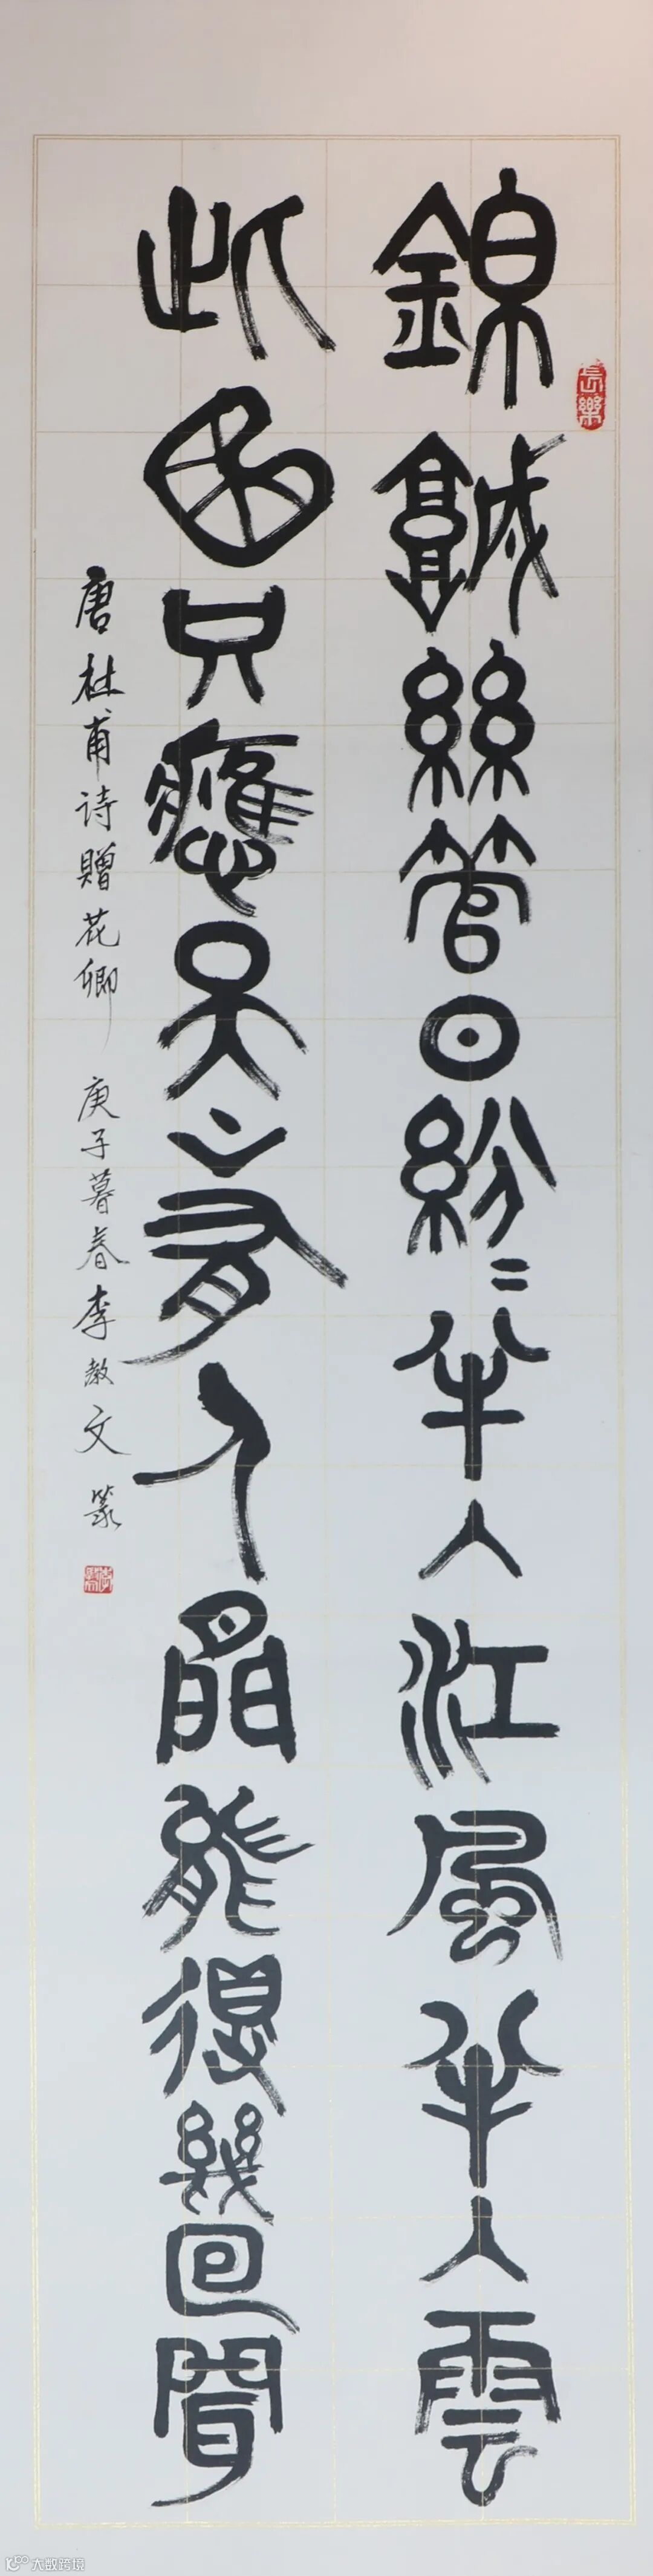 長樂
錦城絲管日紛〻半入江風半入雲
此曲只應天上有人間能得幾回聞
唐杜甫詩贈花卿 庚子暮春李教文篆
大数跨境